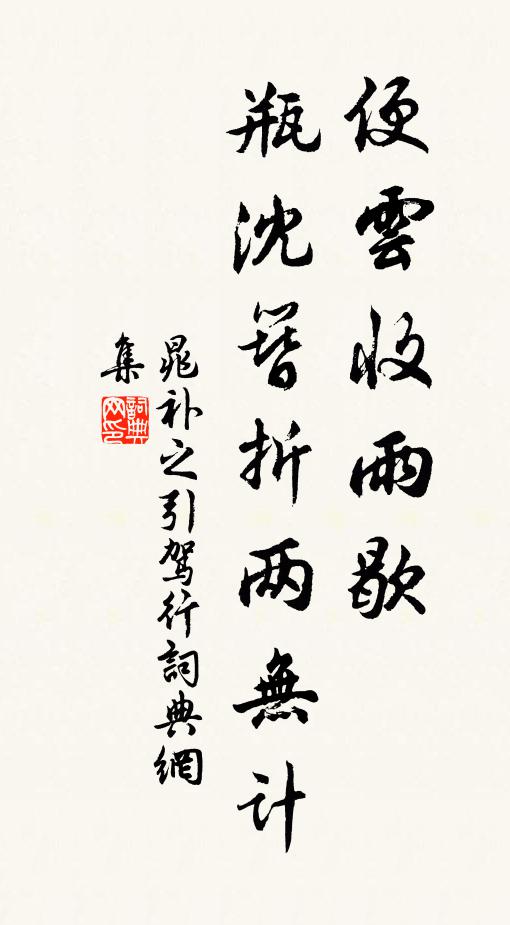 便雲收雨歇
瓶沈簪折兩無計
晁补之引駕行詞典網
集
詞典
网印